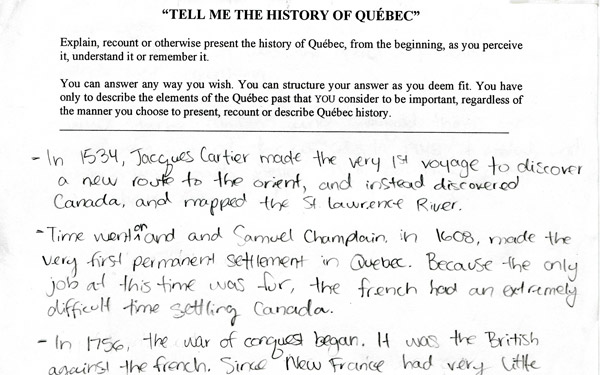 “TELL ME THE HISTORY OF QUÉBEC”
Explain, recount or otherwise present the history of Québec, from the beginning, as you perceive
it, understand it or remember it.
You can answer any way you wish. You can structure your answer as you deem fit. You have
only to describe the elements of the Québec past that YOU consider to be important, regardless of
the manner you choose to present, recount or describe Québec history.
- In 1534, Jacques Cartier made the very 1st voyage to discover
a new route to the orient, and instead discovered
Canada, and mapped the St Lawrence River.
- Time went on and and Samuel Champlain, in 1608, made the
very first permanent settlement in Quebec. Because the only
job at this time was fur, the french had an extremely
difficult time settling Canada.
- In 1756, the war of conquest began. It was the British
against the french. Since New France had very little